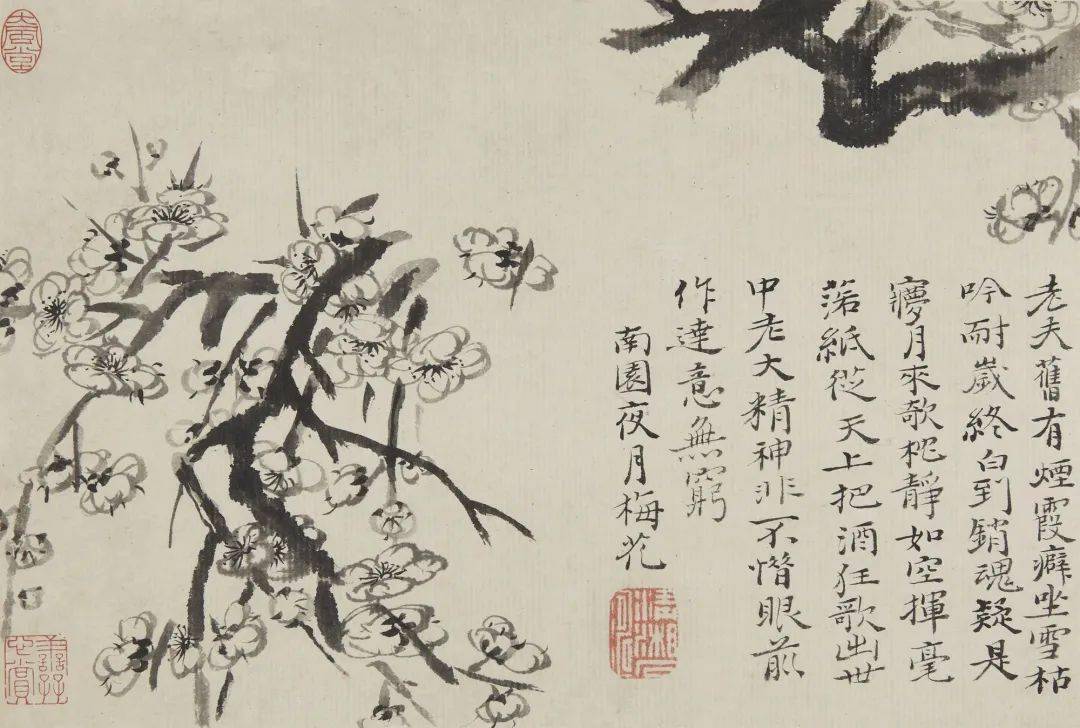 老夫舊有煙霞癖坐雪枯
吟耐歲終白到銷魂疑是
夢月來欹枕靜如空揮毫
落紙從天上把酒狂歌出世
中老大精神非不惜眼前
作達意無窮
南園夜月梅花
清湘石濤
大風堂